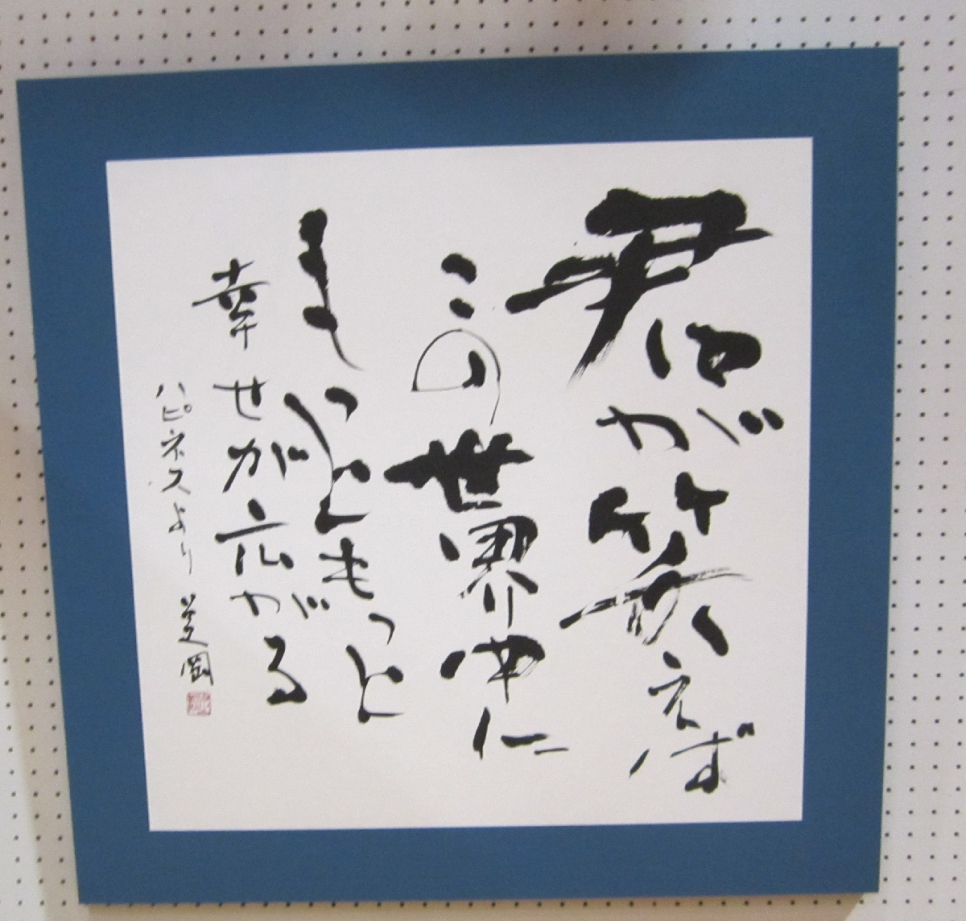 君が笑えば
この世界中に
もっともっと
幸せが広がる
ハピネスより